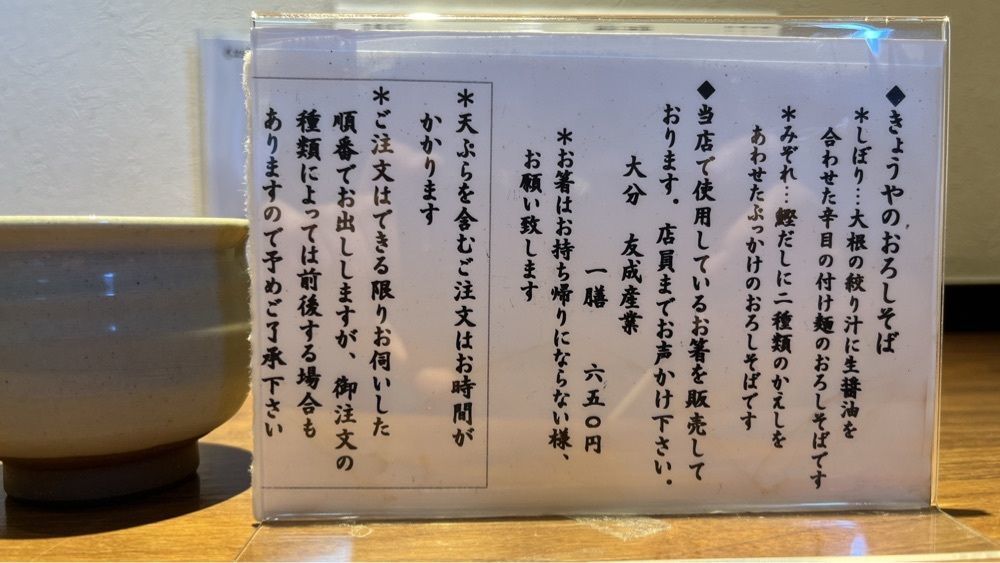 ◆きょうやのおろしそば
＊しぼり…大根の絞り汁に生醤油を
合わせた辛目の付け麺のおろしそばです
＊みぞれ…鰹だしに二種類のかえしを
あわせたぶっかけのおろしそばです
◆当店で使用しているお箸を販売して
おります。店員までお声かけ下さい。
大分　友成産業
一膳　六五〇円
＊お箸はお持ち帰りにならない様、
お願い致します
＊天ぷらを含むご注文はお時間が
かかります
＊ご注文はできる限りお伺いした
順番でお出ししますが、御注文の
種類によっては前後する場合も
ありますので予めご了承下さい